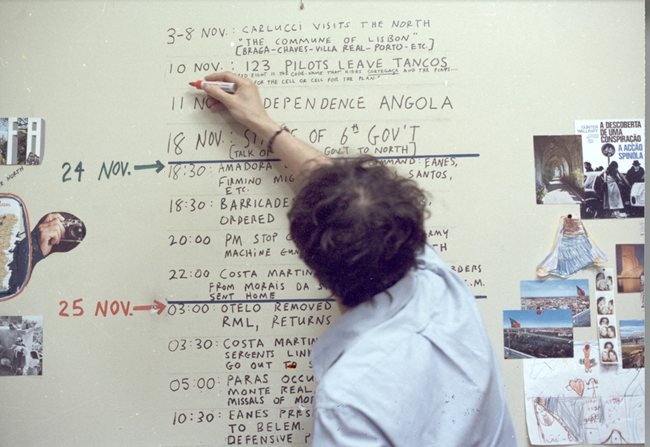 3-8 NOV.: CARLUCCI VISITS THE NORTH
"THE COMMUNE OF LISBON"
[BRAGA-CHAVES-VILLA REAL-PORTO-ETC]
10 NOV.: 123 PILOTS LEAVE TANCOS
PILOT IS THE CODE-NAME THAT HIDES CORTEGACA AND THE
FOR THE CELL OR CELL FOR THE PLAN"
11 NO DEPENDENCE ANGOLA
18 NOV: OF 6th GOV'T
[TALK OF GOV'T TO NORTH]
24 NOV.
18:30: AMADORA MMAND: EANES,
FIRMINO MIG SANTOS,
ETC.
18:30: BARRICADE
ORDERED
20:00 PM STOP RMY
MACHINE GUN
22:00 COSTA MARTIN DERS
FROM MORAIS DA S .M.
SENT HOME
25 NOV.
03:00: OTELO REMOVED
RML, RETURNS
03:30: COSTA MARTIN
SERGENTS LINK
GO OUT TO S
05:00: PARAS OCCU
MONTE REAL,
MISSALS OF MO
10:30: EANES PRES
TO BELEM.
DEFENSIVE P
GÜNTER WALLRAFF
A DESCOBERTA
DE UMA
CONSPIRAÇÃO
A ACÇÃO
SPÍNOLA
NORTH